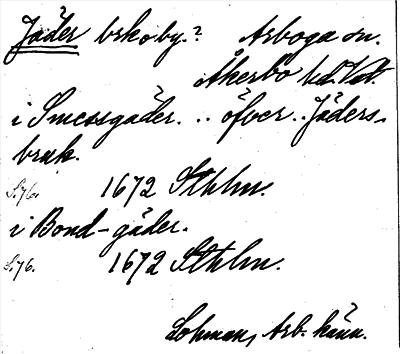 Jäder brko by.? Arboga sn.
Åkerbo hd. Vstm.
i Smessgäder. .. öfver .. Jäders-
bruk.
S.76. 1672 Sthlm.
i Bond-gäder.
S.76. 1672 Sthlm.
Lohman, Arb. känn.